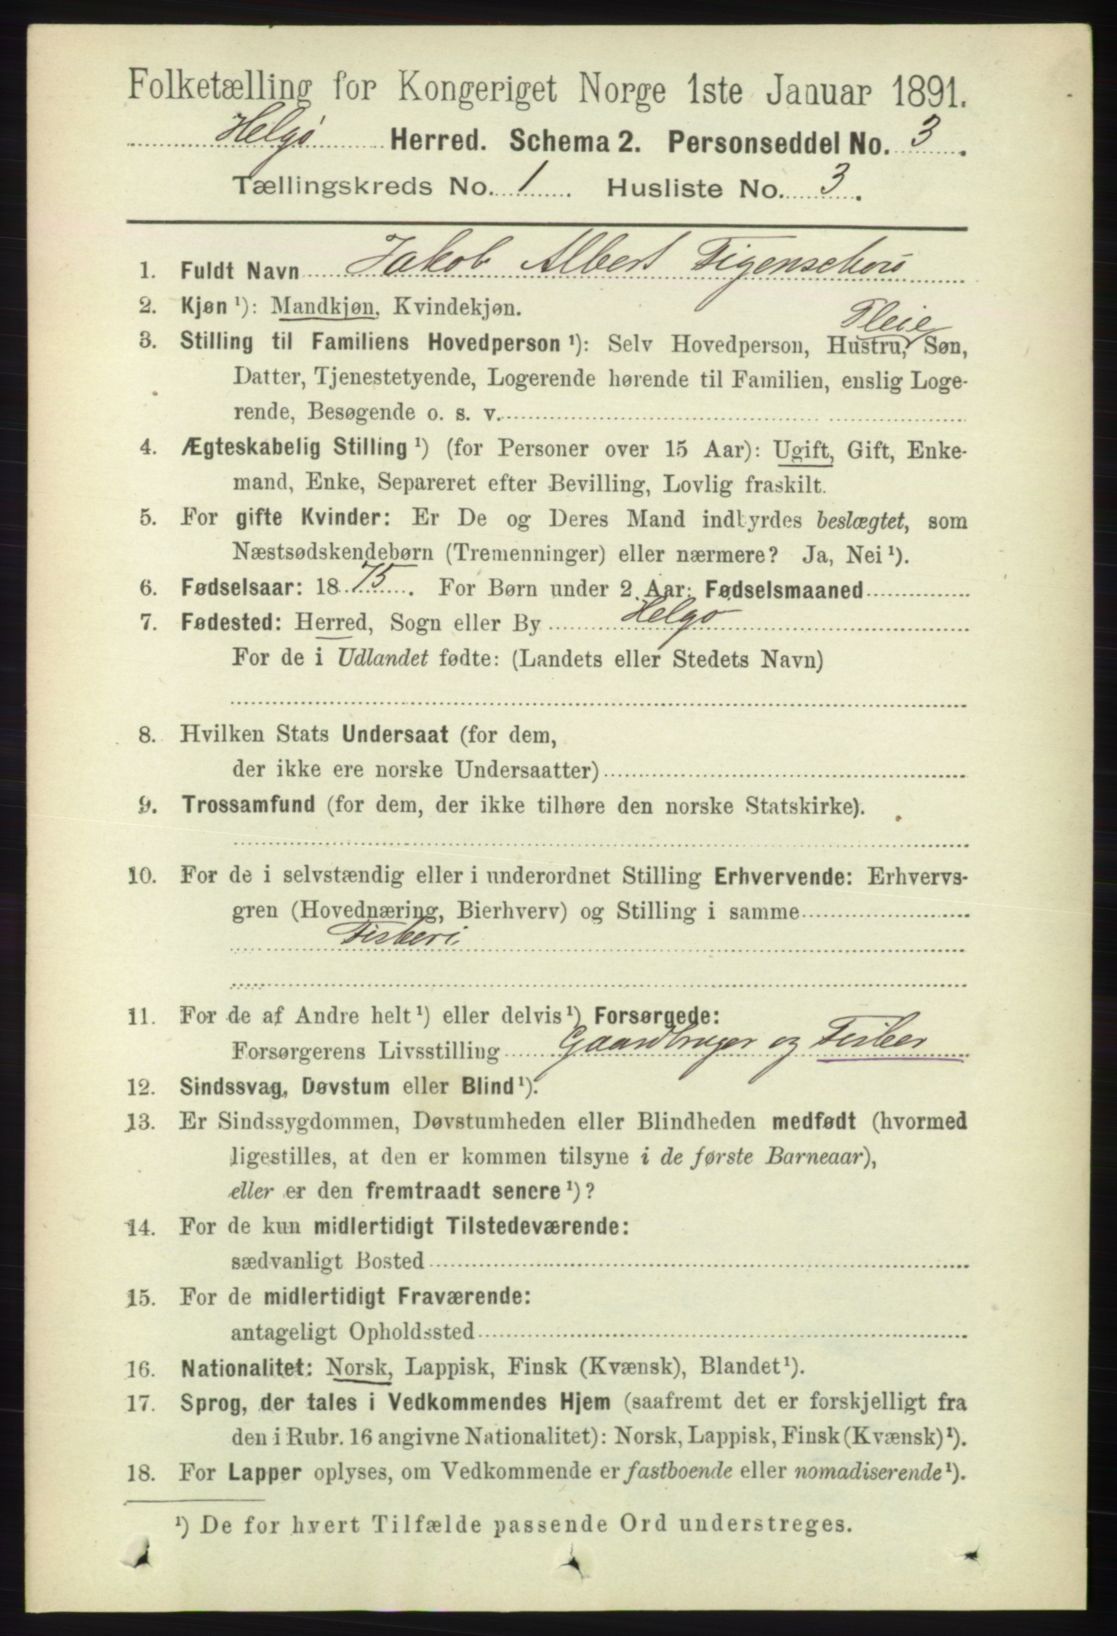 Folketælling for Kongeriget Norge 1ste Januar 1891.
Helgø Herred. Schema 2. Personseddel No. 3.
Tællingskreds No. 1. Husliste No. 3.
1. Fuldt Navn Jakob Albert Figenschou
2. Kjøn ¹): Mandkjøn, Kvindekjøn.
Pleie
3. Stilling til Familiens Hovedperson ¹): Selv Hovedperson, Hustru, Søn,
Datter, Tjenestetyende, Logerende hørende til Familien, enslig Loge-
rende, Besøgende o. s. v.
4. Ægteskabelig Stilling ¹) (for Personer over 15 Aar): Ugift, Gift, Enke-
mand, Enke, Separeret efter Bevilling, Lovlig fraskilt.
5. For gifte Kvinder: Er De og Deres Mand indbyrdes beslægtet, som
Næstsødskendebørn (Tremenninger) eller nærmere? Ja, Nei ¹).
6. Fødselsaar: 1875. For Børn under 2 Aar: Fødselsmaaned
7. Fødested: Herred, Sogn eller By Helgø
For de i Udlandet fødte: (Landets eller Stedets Navn)
8. Hvilken Stats Undersaat (for dem,
der ikke ere norske Undersaatter)
9. Trossamfund (for dem, der ikke tilhøre den norske Statskirke).
10. For de i selvstændig eller i underordnet Stilling Erhvervende: Erhvervs-
gren (Hovednæring, Bierhverv) og Stilling i samme
Fiskeri
11. For de af Andre helt ¹) eller delvis ¹) Forsørgede:
Forsørgerens Livsstilling Gaardbruger og Fisker
12. Sindssvag, Døvstum eller Blind ¹).
13. Er Sindssygdommen, Døvstumheden eller Blindheden medfødt (hvormed
ligestilles, at den er kommen tilsyne i de første Barneaar),
eller er den fremtraadt senere ¹)?
14. For de kun midlertidigt Tilstedeværende:
sædvanligt Bosted
15. For de midlertidigt Fraværende:
antageligt Opholdssted
16. Nationalitet: Norsk, Lappisk, Finsk (Kvænsk), Blandet ¹).
17. Sprog, der tales i Vedkommendes Hjem (saafremt det er forskjelligt fra
den i Rubr. 16 angivne Nationalitet): Norsk, Lappisk, Finsk (Kvænsk) ¹).
18. For Lapper oplyses, om Vedkommende er fastboende eller nomadiserende ¹).
¹) De for hvert Tilfælde passende Ord understreges.